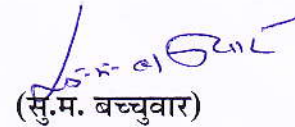 (सु.म. बच्चुवार)